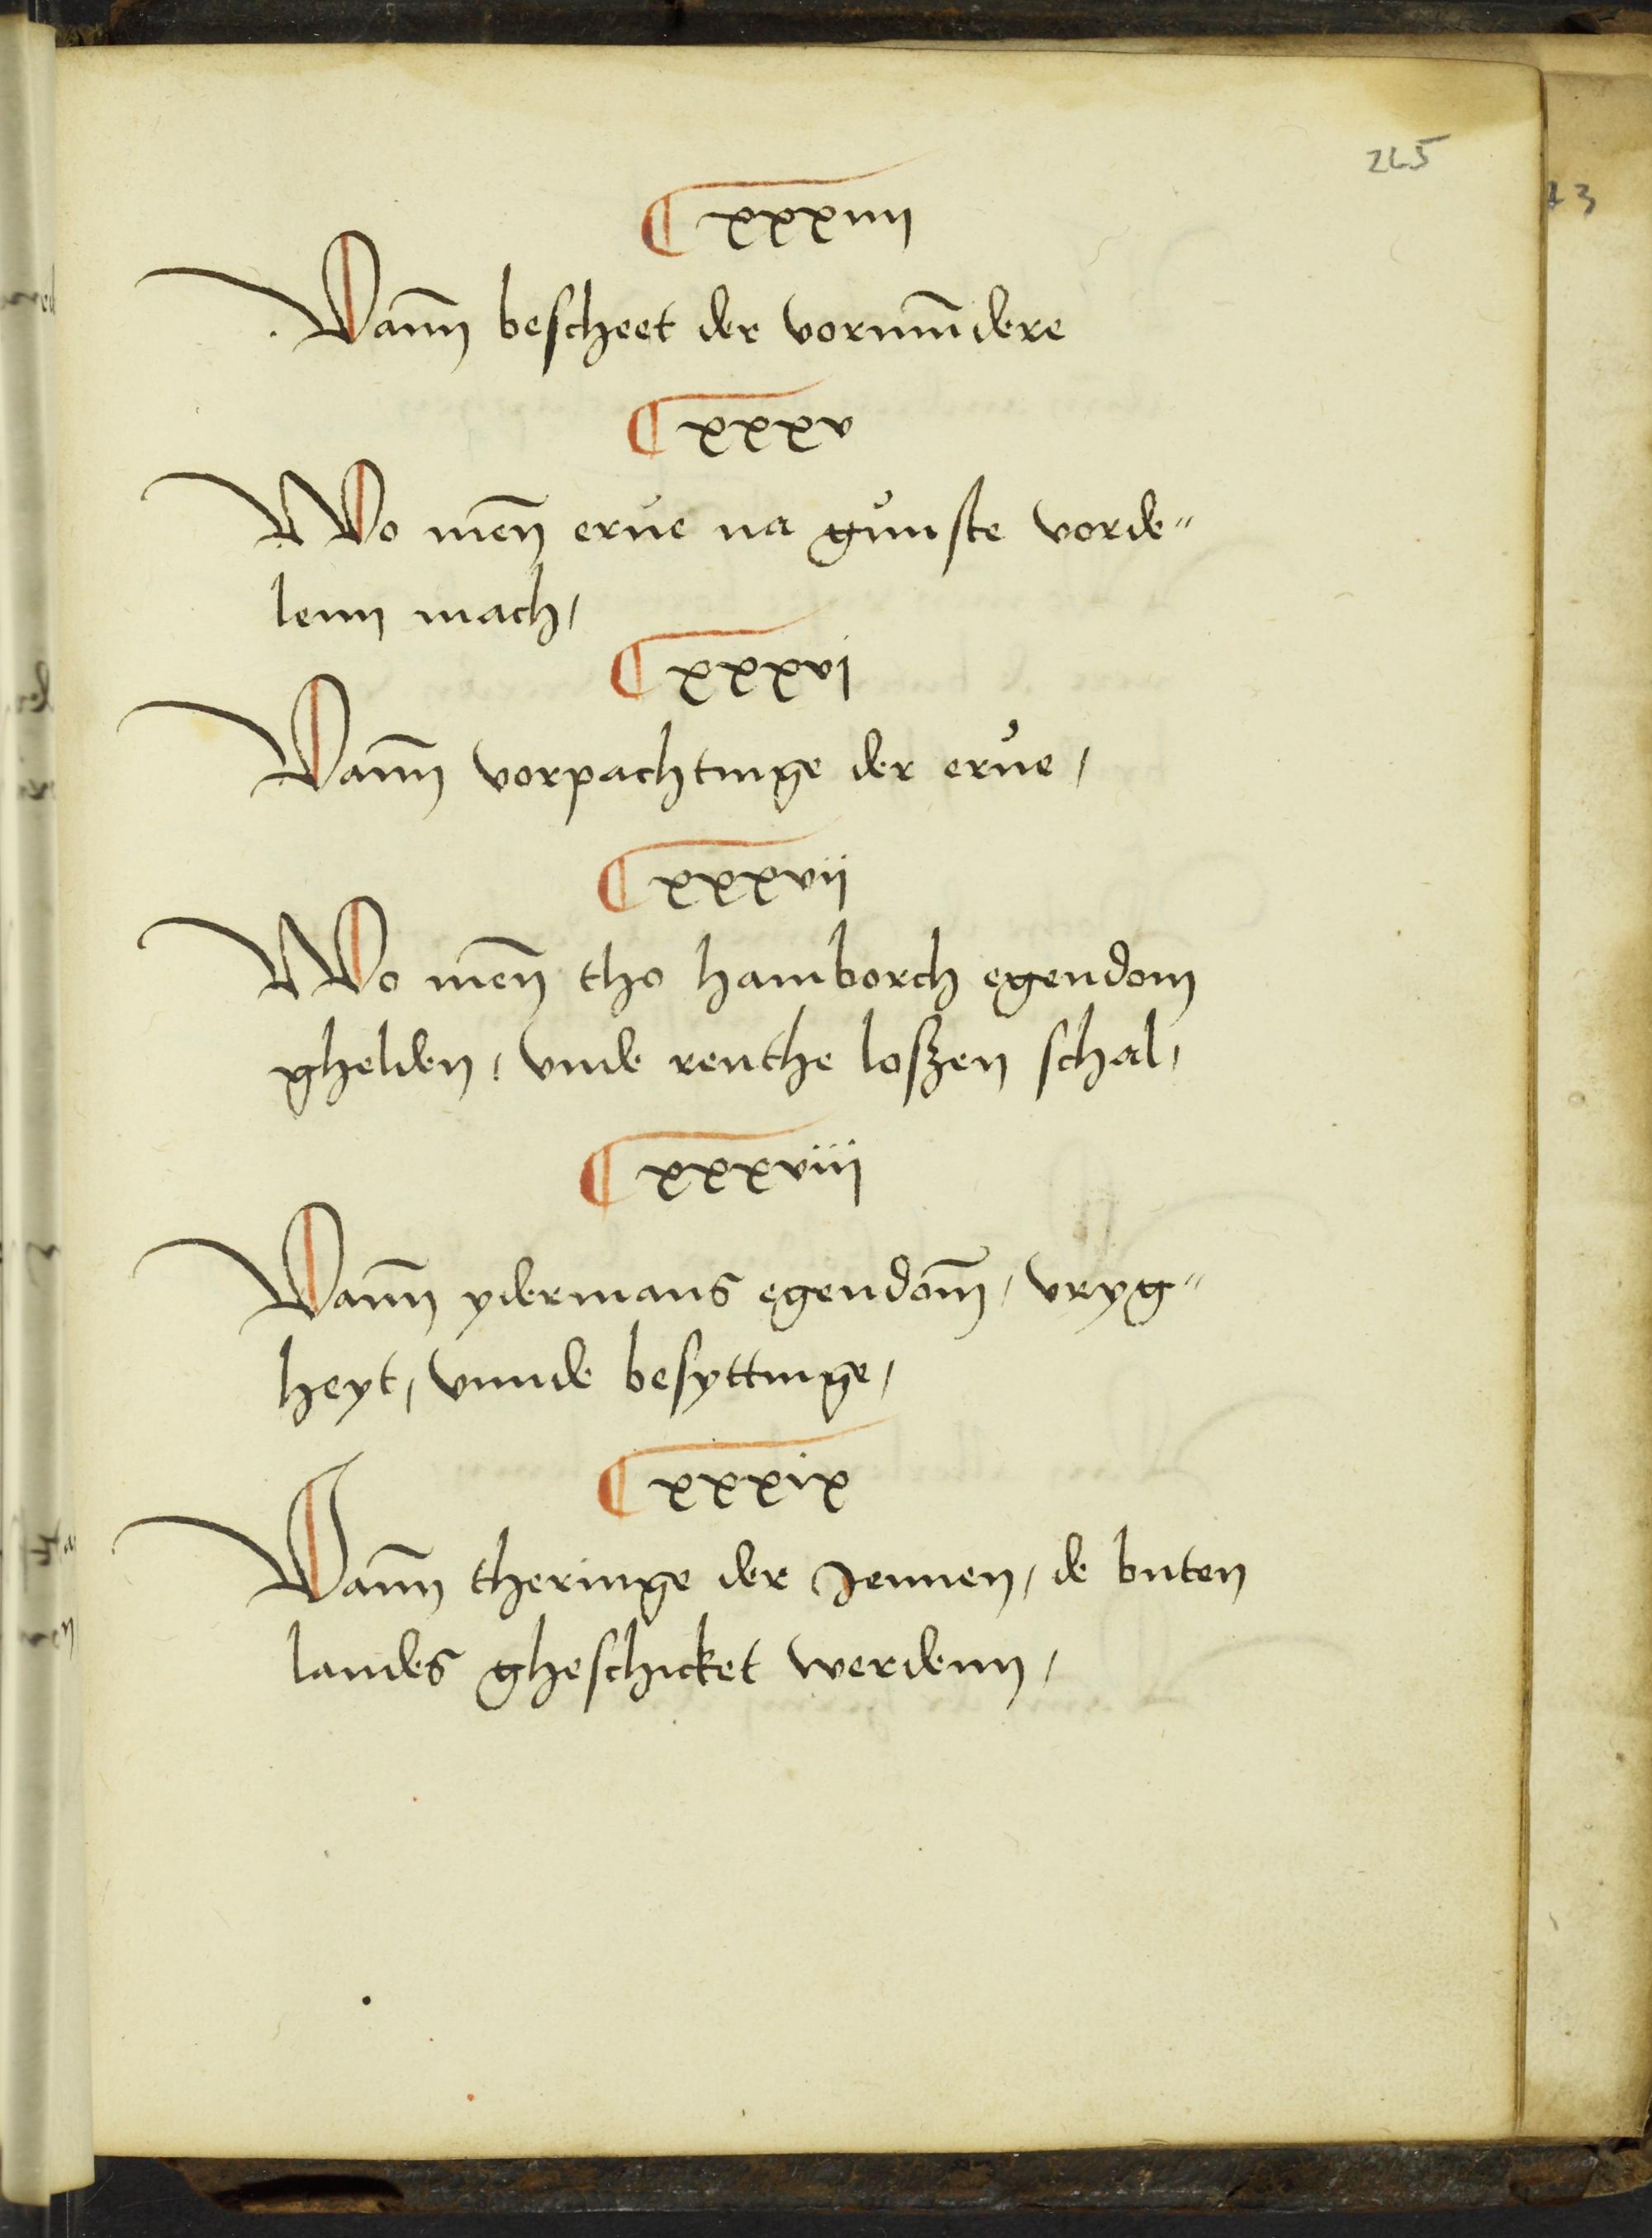 265
¶ xxxiiii
Vann bescheet der vormu̅dere
¶ xxxv
Wo men̅ erue na gunste vorde-
lenn mach/
¶ xxxvi
Vann vorpachtinge der erue/
¶ xxxvii
Wo men̅ tho hamborch egendom
ghelden/ vnde renthe loszen schal/
¶ xxxviii
Vann ydermans egendom̅/ vryg-
heyt/ vnnde besyttinge/
¶ xxxix
Vann theringe der Jennen/ de buten
landes gheschicket werdenn/